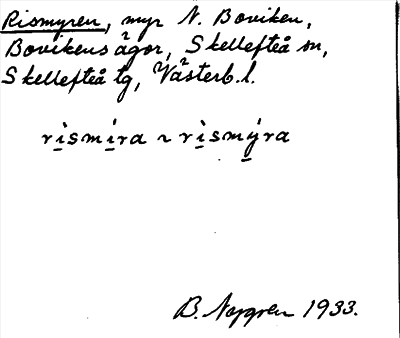 Rismyren, myr N. Boviken,
Bovikens ägor, Skellefteå sn,
Skellefteå tg, Västerb. l.
rìsmíra ~ rìsmýra
B. 1933.